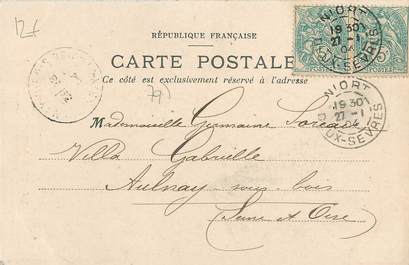 12f
RÉPUBLIQUE FRANÇAISE
CARTE POSTALE
Ce côté est exclusivement réservé à l'adresse
NIORT
19 30
27 - 1
04
DEUX-SÈVRES
NIORT
19 30
27 - 1
04
DEUX-SÈVRES
79
Mademoiselle Germaine
Villa Gabrielle
Aulnay-sous-bois
(Seine et Oise)